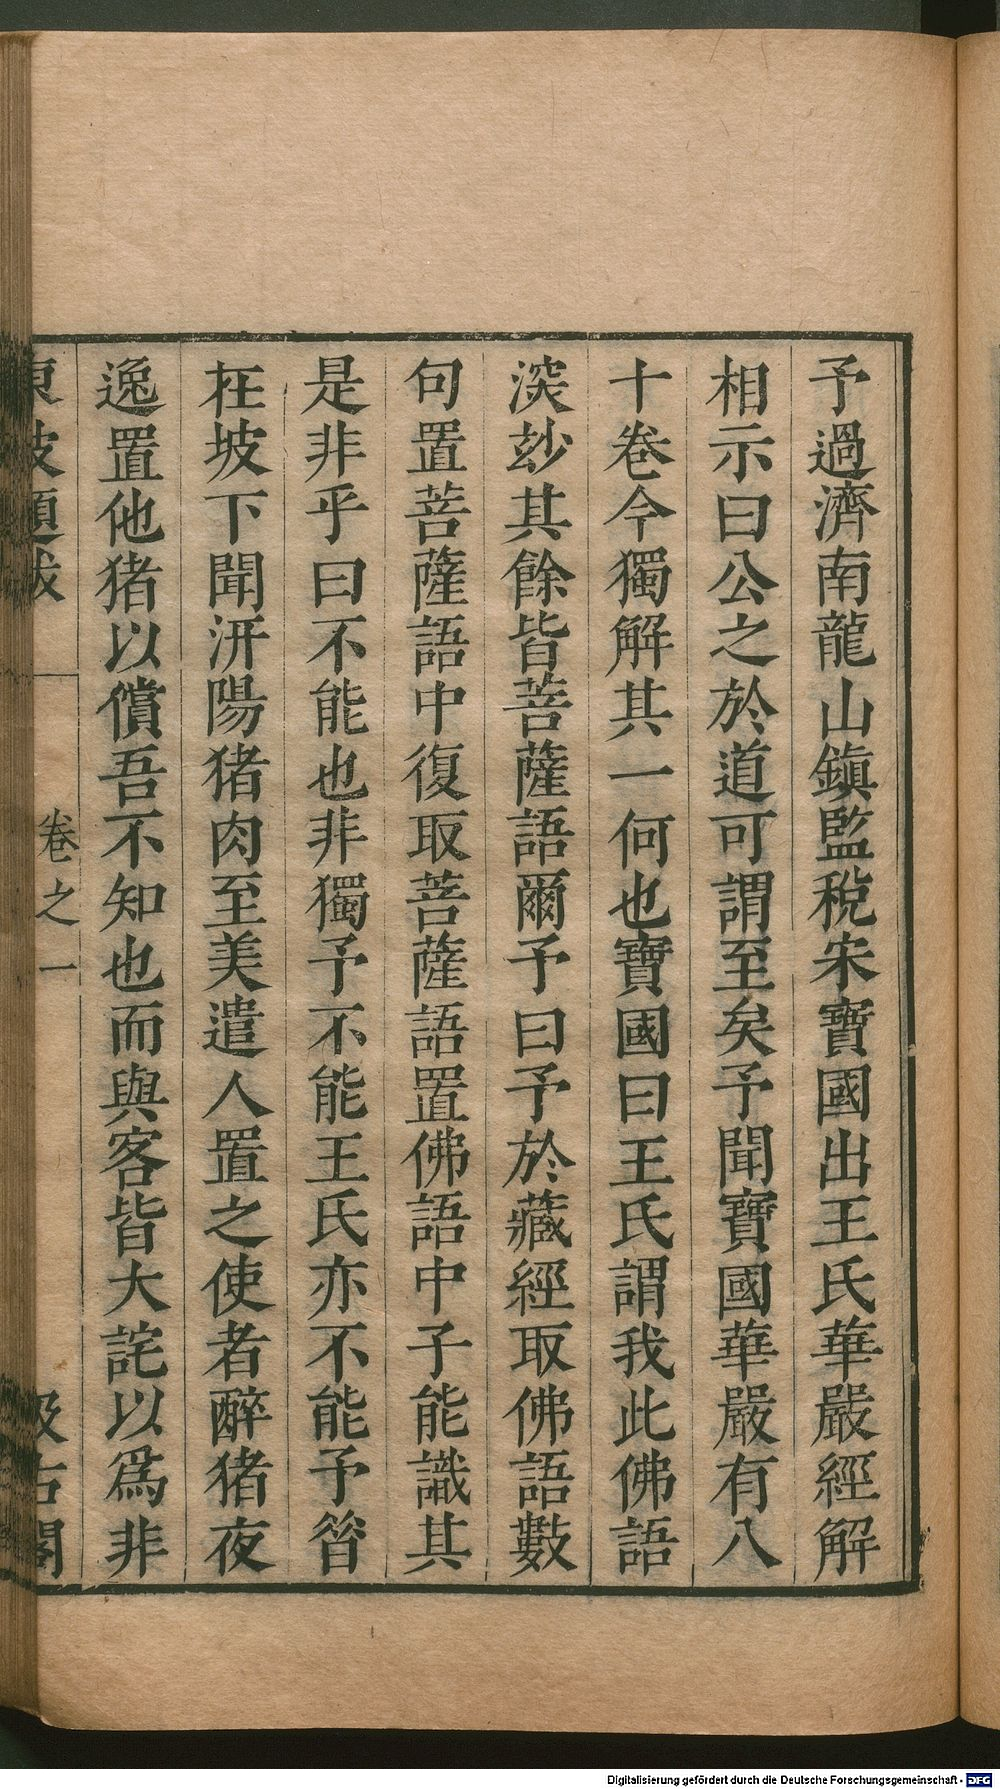 予過濟南龍山鎮監稅宋寶國出王氏華嚴經解
相示曰公之於道可謂至矣予聞寶國華嚴有八
十卷今獨解其一何也寶國曰王氏謂我此佛語
深玅其餘皆菩薩語爾予曰予於藏經取佛語數
句置菩薩語中復取菩薩語置佛語中子能識其
是非乎曰不能也非獨予不能王氏亦不能予昝
在坡下聞汧陽猪肉至美遣人置之使者醉猪夜
逸置他猪以償吾不知也而與客皆大詫以爲非
東坡題跋 卷之一 汲古閣
Digitalisierung gefördert durch die Deutsche Forschungsgemeinschaft - DFG